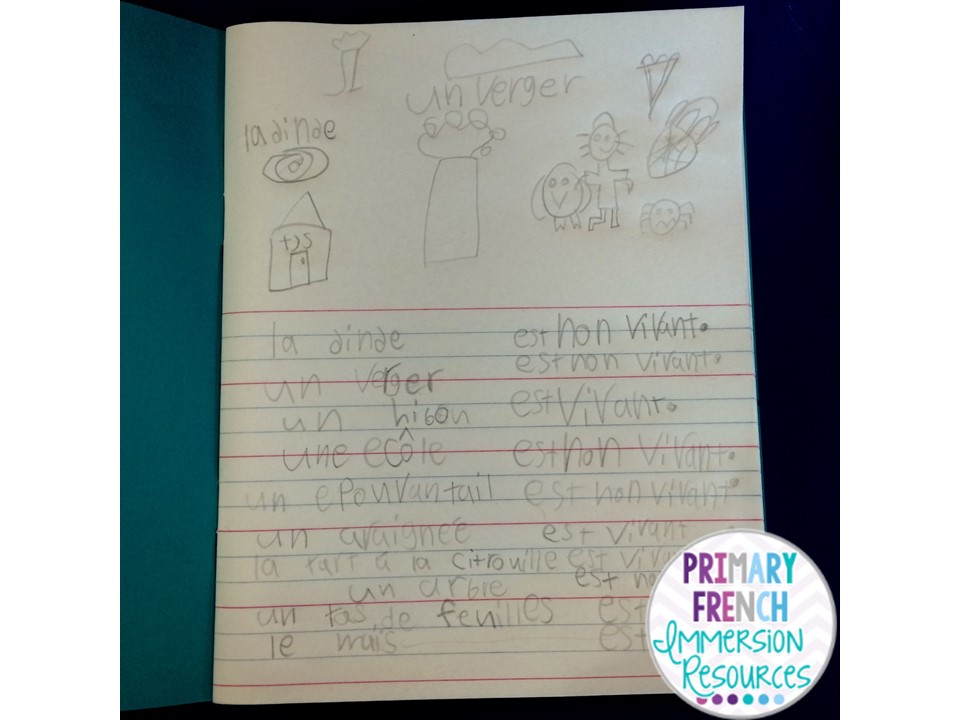 un verger
la dinde
la dinde est non vivant.
un verger est non vivant.
un hibou est vivant.
une ecôle est non vivant.
un epouvantail est non vivant.
un araignée est vivant.
la tart à la citrouille est viva
un arbre est no
un tas de feuilles est
le mais est
PRIMARY
FRENCH
IMMERSION
RESOURCES